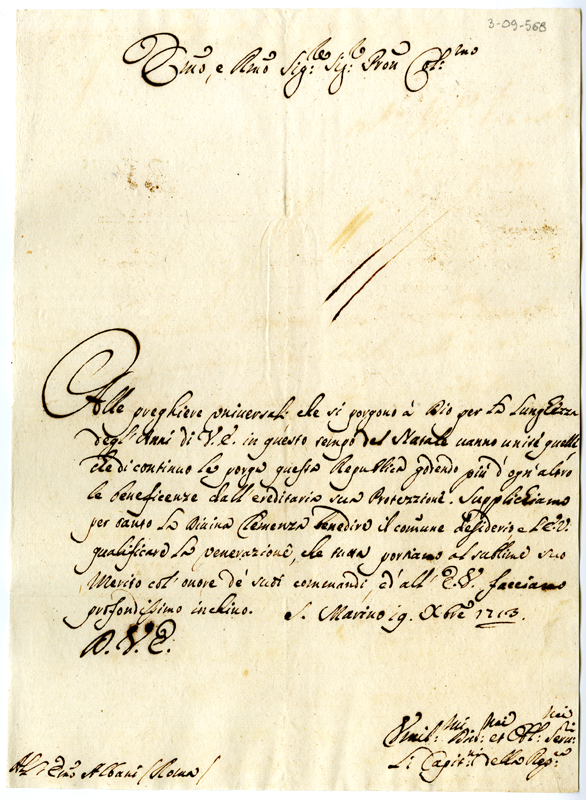 3-09-568
Emo, e Rmo Sig:re Sig:re Pron Col:mo
Alle preghiere universali che si porgono à Dio per la lunghezza
degl'Anni di V.E. in questo tempo del Natale vanno unite quelle
che di continuo le porge questa Republica godendo più d'ogn'altro
le beneficenze dall'ereditaria sua Protezzione. Supplichiamo
per tanto la Divina Clemenza benedire il comune desiderio e l'E.V.
qualificare la venerazione, che tutta portiamo al sublime suo
Merito col'onore de' suoi comandi, ed all'E.V. facciamo
profondissimo inchino. S. Marino 19. Xbre 1713.
D. V. E.
Umil:mi Div:mi et Obl:mi Serv:ri
Li Capit:ni della Rep:ca
All'Emo Albani (Roma)